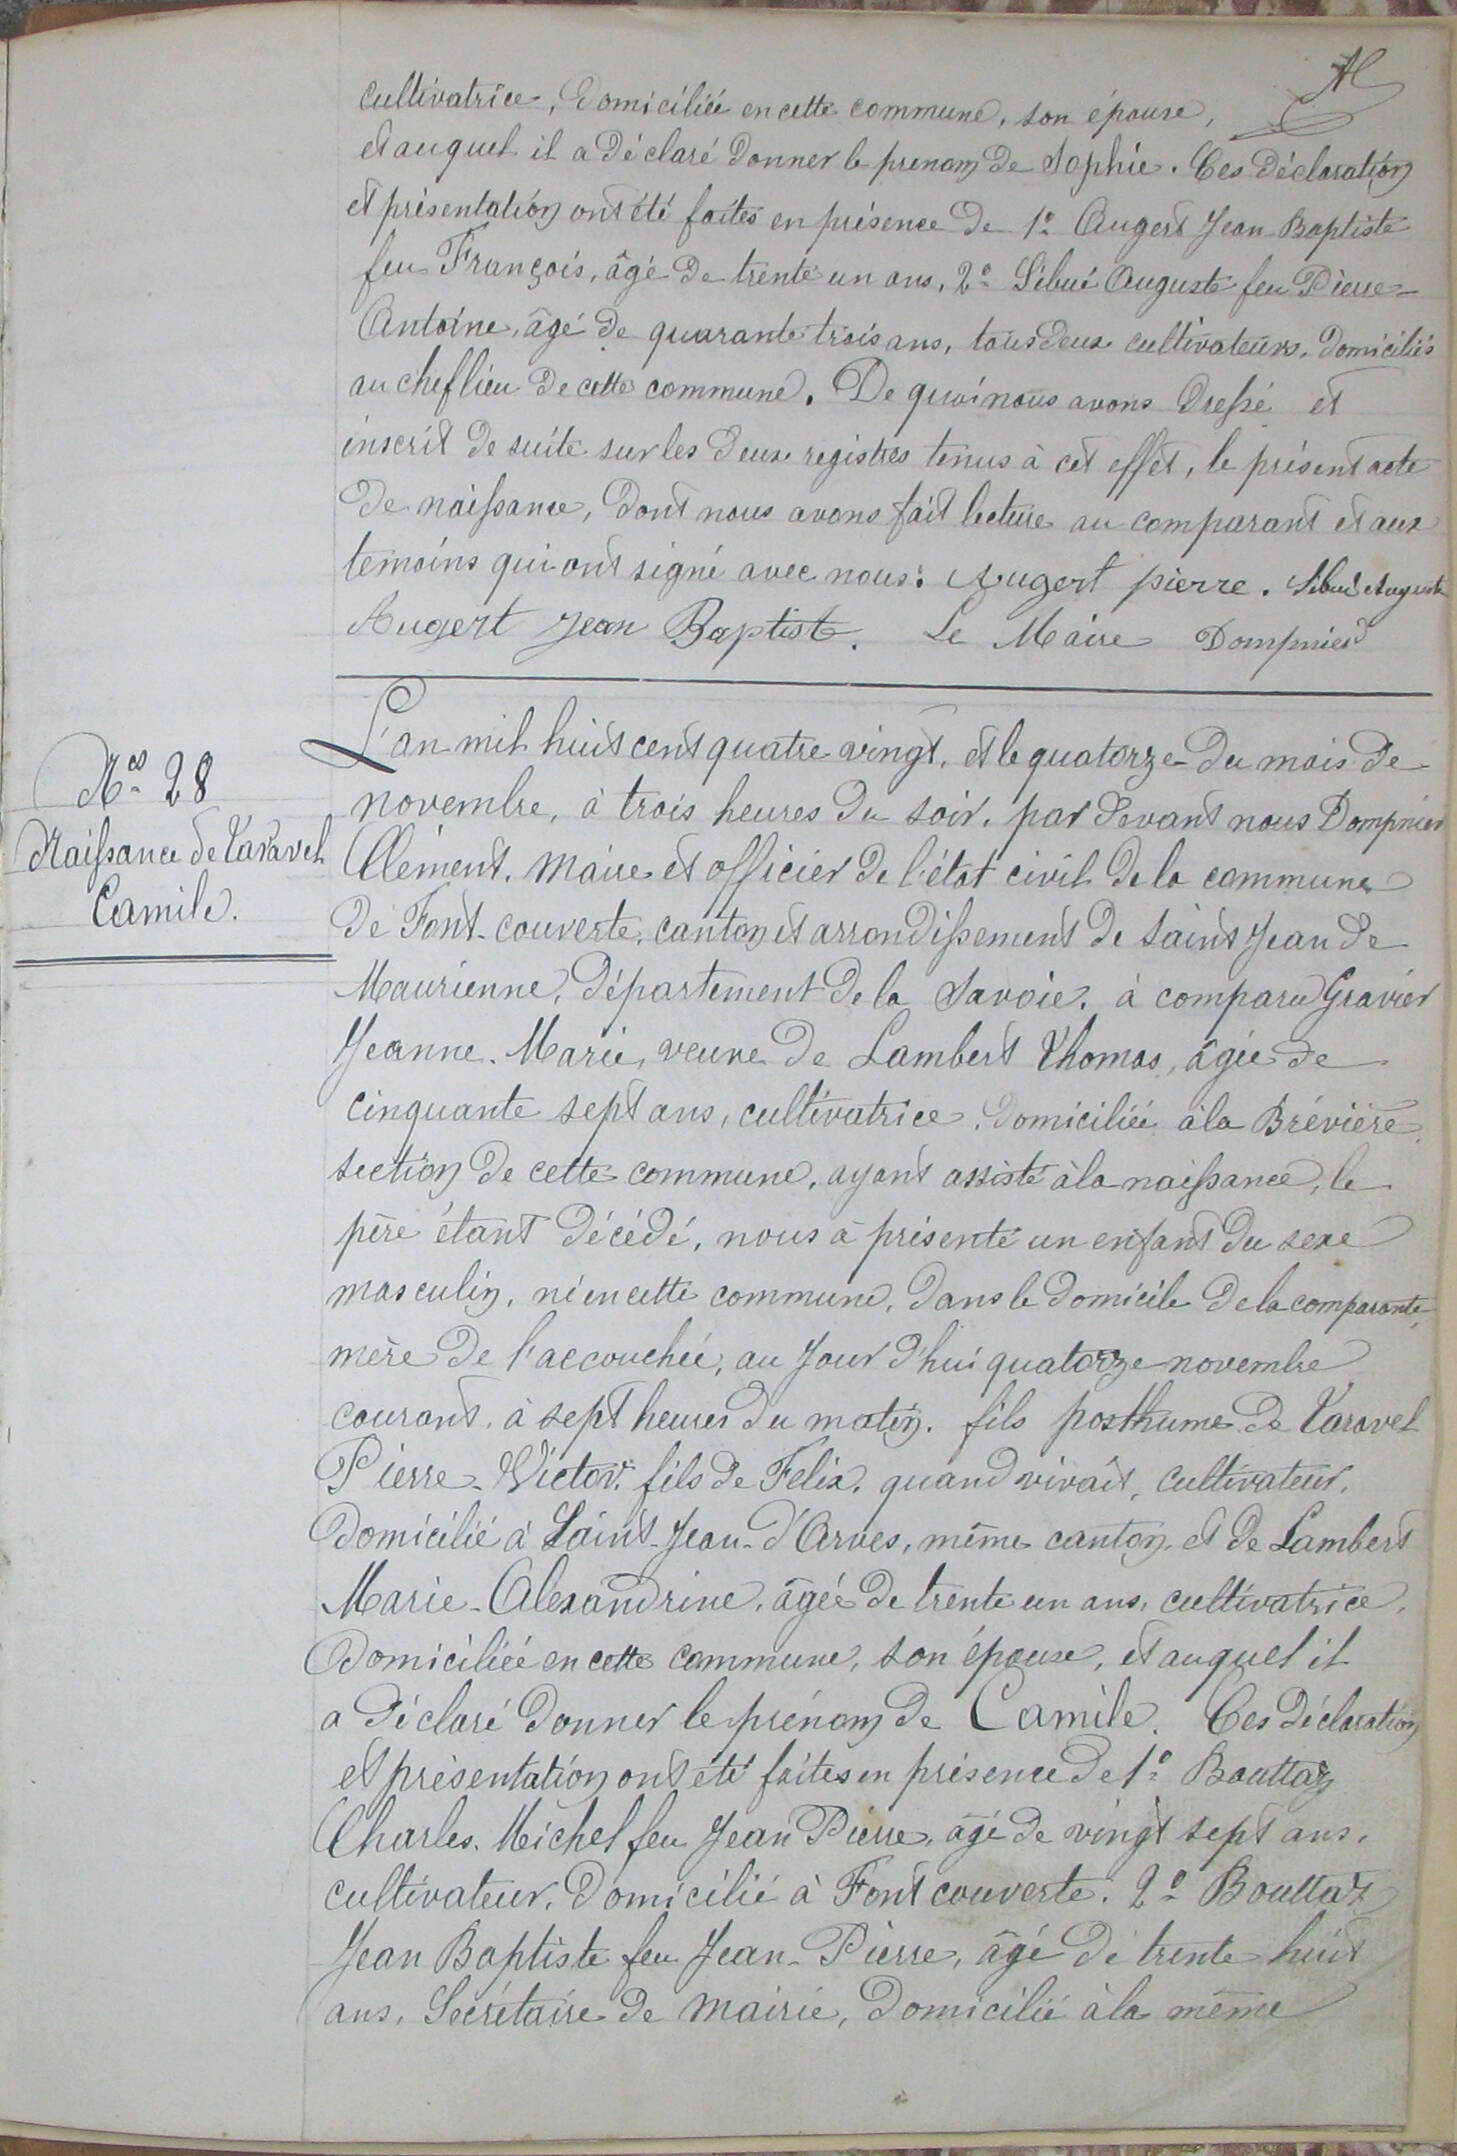 cultivatrice, domiciliée en cette commune, son épouse,
et auquel il a déclaré donner le prenom de Sophie. Ces déclaration
et présentation ont été faites en présence de 1º Augert Jean Baptiste
feu François, âgé de trente un ans, 2º Sibué Auguste feu Pierre-
Antoine, âgé de quarante trois ans, tous deux cultivateurs, domiciliés
au chef lieu de cette commune. De quoi nous avons dressé et
inscrit de suite sur les deux registres tenus à cet effet, le présent acte
de naissance, dont nous avons fait lecture au comparant et aux
temoins qui ont signé avec nous: Augert pierre. Sibué Auguste
Augert Jean Baptiste. Le Maire Dompnier
Nº 28
Naissance de Taravel
Camile.
L'an mil huit cent quatre vingt, et le quatorze du mois de
novembre, à trois heures du soir, par devant nous Dompnier
Clément, Maire et officier de l'état civil de la commune
de Font-couverte, canton et arrondissement de Saint Jean de
Maurienne, département de la Savoie, à comparu Gravier
Jeanne-Marie, veuve de Lambert Thomas, âgée de
cinquante sept ans, cultivatrice, domiciliée à la Brévière,
section de cette commune, ayant assisté à la naissance, le
père étant décédé, nous à présenté un enfant du sexe
masculin, né en cette commune, dans le domicile de la comparante,
mère de l'accouchée, au jour d'hui quatorze novembre
courant, à sept heures du matin, fils posthume de Taravel
Pierre-Victor, fils de Felix, quand vivait, cultivateur,
domicilié à Saint-Jean-d'Arves, même canton, et de Lambert
Marie-Alexandrine, âgée de trente un ans, cultivatrice,
domiciliée en cette commune, son épouse, et auquel il
a déclaré donner le prénom de Camile. Ces déclaration
et présentation ont été faites en présence de 1º Bouttaz
Charles-Michel feu Jean Pierre, âgé de vingt sept ans,
cultivateur, domicilié à Font couverte. 2º Bouttaz
Jean Baptiste feu Jean-Pierre, âgé de trente huit
ans, Secrétaire de Mairie, domicilié à la même